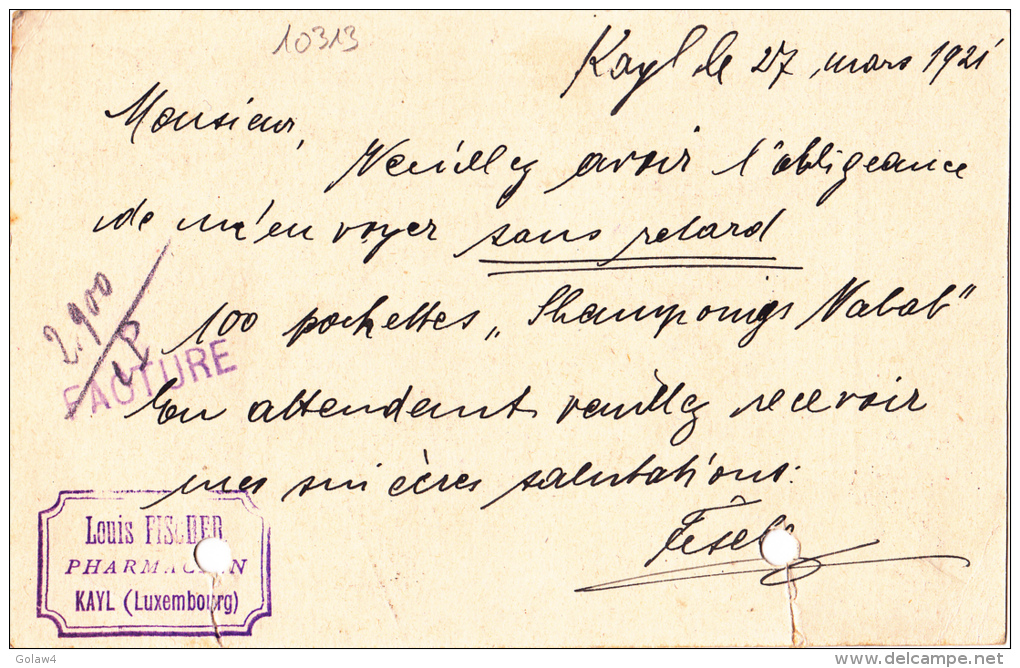 10313
Kayl, le 27 mars 1921
Monsieur,
Veuillez avoir l'obligeance
de m'envoyer sans retard
100 pochettes „Shampoings Nabab"
2.900
FACTURE
En attendant veuillez recevoir
mes sincères salutations.
Louis FISCHER
PHARMACIEN
KAYL (Luxembourg)
Golaw4
www.delcampe.net